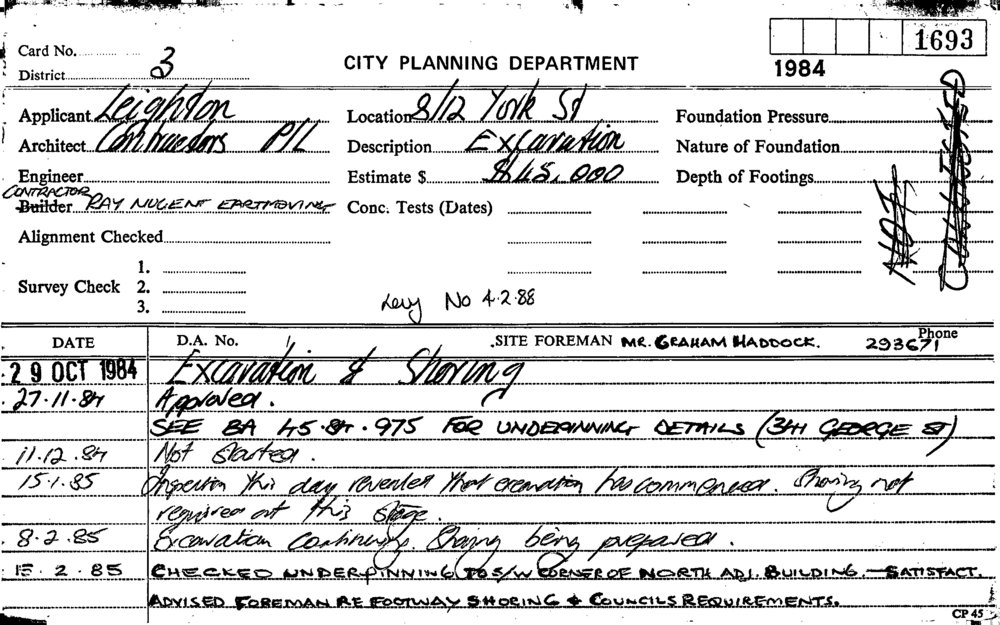 Card No.
1693
District 3
CITY PLANNING DEPARTMENT
1984
Applicant Leighton
Location 8/12 York St
Foundation Pressure
Architect Contractors P/L
Description Excavation
Nature of Foundation
Engineer
Estimate $ $45,000
Depth of Footings
CONTRACTOR
Builder RAY NUGENT EARTHMOVING
Conc. Tests (Dates)
NOT
Alignment Checked
Survey Check
1.
2.
3.
Levy No 4.2.88
DATE
D.A. No.
SITE FOREMAN MR. GRAHAM HADDOCK.
Phone
293671
29 OCT 1984 Excavation & Shoring
27.11.84 Approved.
SEE BA 45.84.975 FOR UNDERPINNING DETAILS (341 GEORGE ST)
11.12.84 Not Started.
15.1.85 Inspection this day revealed that excavation has commenced. Shoring not
required at this stage.
8.2.85 Excavation continuing. Shoring being prepared.
15.2.85 CHECKED UNDERPINNING TO S/W CORNER OF NORTH ADJ. BUILDING. — SATISFACT.
ADVISED FOREMAN RE FOOTWAY SHORING & COUNCILS REQUIREMENTS.
CP 45